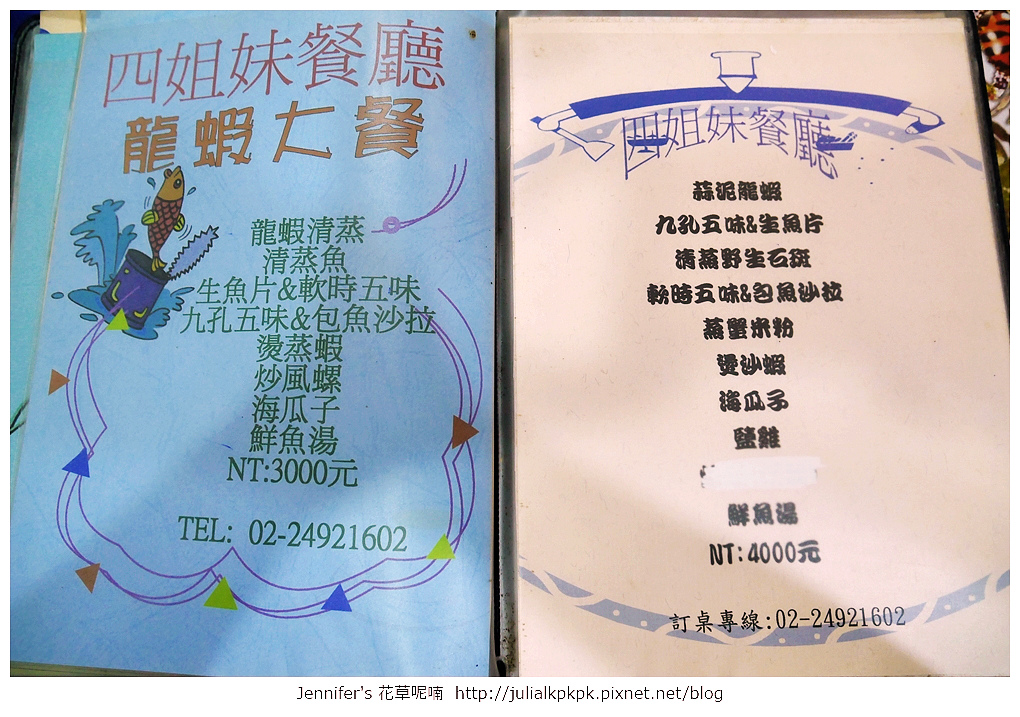 四姐妹餐廳
龍蝦大餐
龍蝦清蒸
清蒸魚
生魚片&軟時五味
九孔五味&包魚沙拉
燙蒸蝦
炒風螺
海瓜子
鮮魚湯
NT:3000元
TEL: 02-24921602
四姐妹餐廳
蒜泥龍蝦
九孔五味&生魚片
清蒸野生石斑
軟時五味&包魚沙拉
蒸蟹米粉
燙沙蝦
海瓜子
鹽雞
鮮魚湯
NT:4000元
訂桌專線:02-24921602
Jennifer's 花草呢喃 http://julialkpkpk.pixnet.net/blog